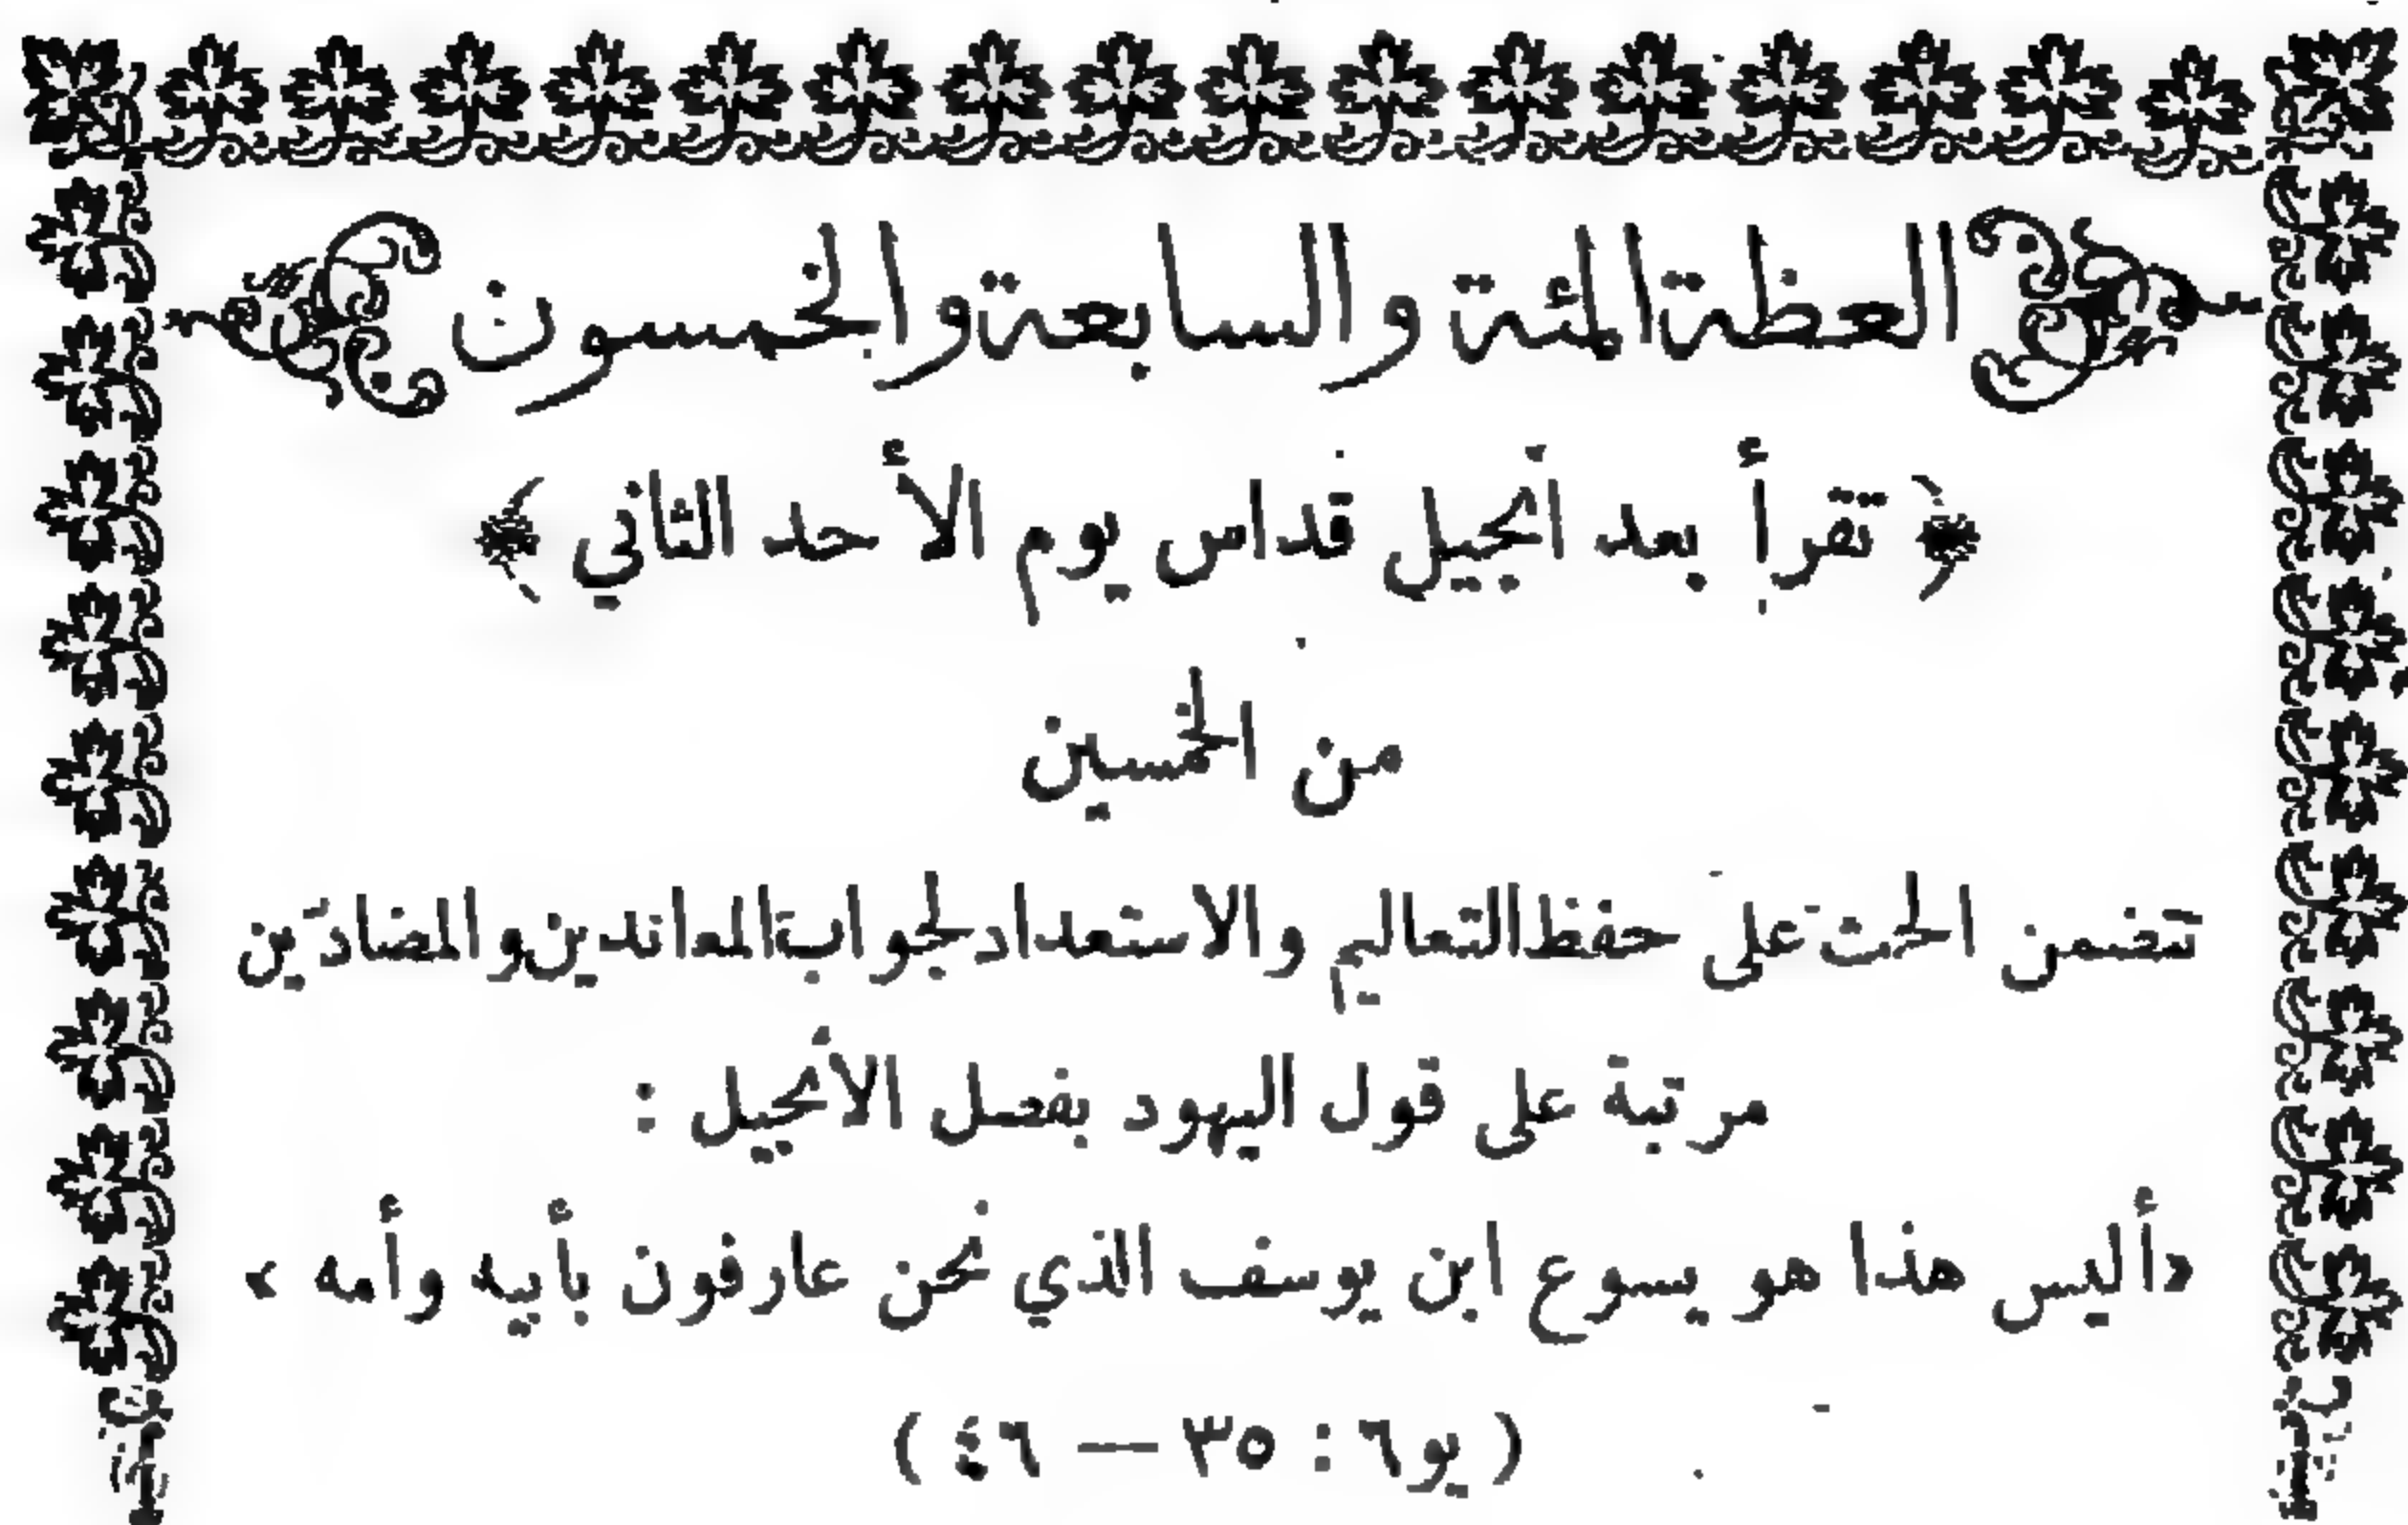 العظة المئة والسابعة والخمسون
﴿ تقرأ بعد انجيل قداس يوم الأحد الثاني ﴾
من الخمسين
تتضمن الحث على حفظ التعاليم والاستعداد لجواب المعاندين والمضادّين
مرتبة على قول اليهود بفصل الانجيل :
«أليس هذا هو يسوع ابن يوسف الذي نحن عارفون بأبيه وأمه »
( يو٦ : ٣٥ — ٤٦ )